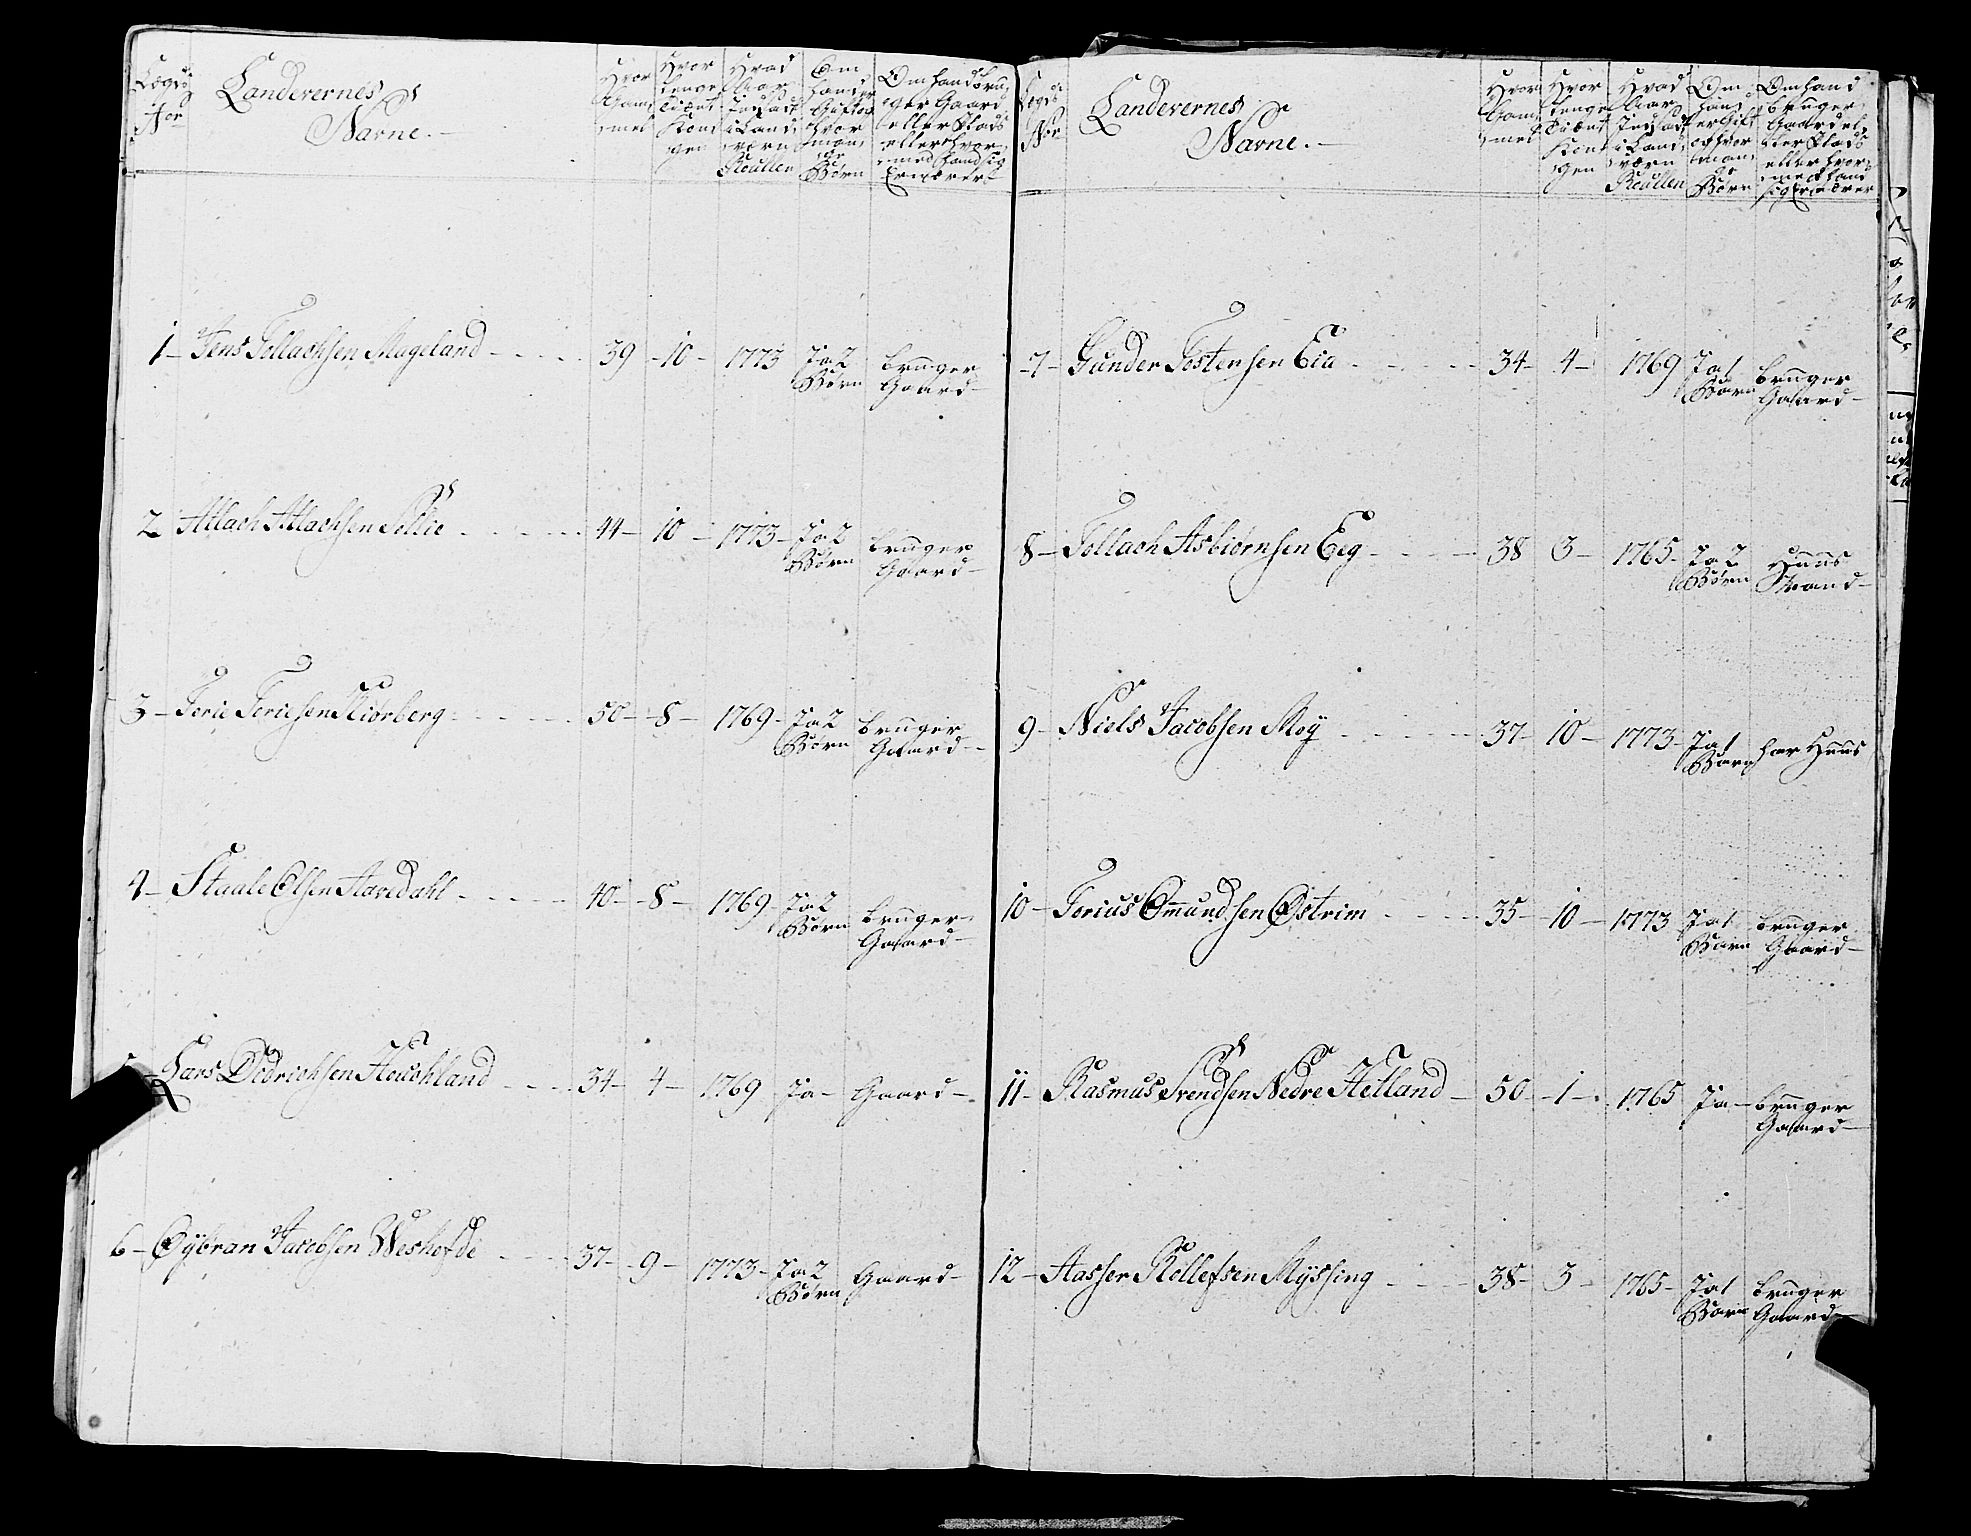 Lægds Nor
Landevernes Navne.
Hvor Gammel
Hvor lenge Tiænt Kongen
Hvad Aar Indsadt i Landværn Roullen
Om Hand er Gift og Hvor mange Børn
Om Hand bruger Gaard eller Plads eller Hvormed Hand sig Ernærer
1 – Jens Tollachsen Mugeland 39 – 10 – 1773 Ja 2 Børn bruger Gaard –
2 Atlach Atlachsen Sellie 44 – 10 – 1773 – Ja 2 Børn bruger Gaard –
3 – Terie Teriesen Skiorberg 50 – 8 – 1769 – Ja 2 Børn bruger Gaard –
4 – Staale Olsen Aavedahl 40 – 8 – 1769 Ja 2 Børn bruger Gaard –
Lars Didrichsen 34 – 4 – 1769 Ja – Gaard –
6 – Øybran Jacobsen 37 – 9 – 1773 – Ja 2 Børn Gaard –
Lægds Nor
Landevernes Navne. –
Hvor Gammel
Hvor lenge Tiænt Kongen
Hvad Aar Indsadt i Landværn Roullen
Om Hand er Gift og Hvor mange Børn
Om Hand bruger Gaard eller Plads eller Hvormed Hand sig Ernærer
7 – Gunder Tostensen Eia 34 – 4 – 1769 Ja 1 Barn bruger Gaard –
8 – Tollach Asbiørnsen Eeg 38 3 – 1765 – Ja 2 Børn Huus Mand –
9 – Niels Jacobsen Moÿ 37 – 10 – 1773 – Ja 1 Barn har Huus
10 – Torius Omundsen Østrim 35 – 10 – 1773 Ja 1 Barn bruger Gaard –
11 – Rasmus Svendsen Nedre Helland – 50 – 1 – 1765 Ja – bruger Gaard –
12 – Aasser Rollefsen Myssing 38 – 3 – 1765 – Ja 1 Barn bruger Gaard